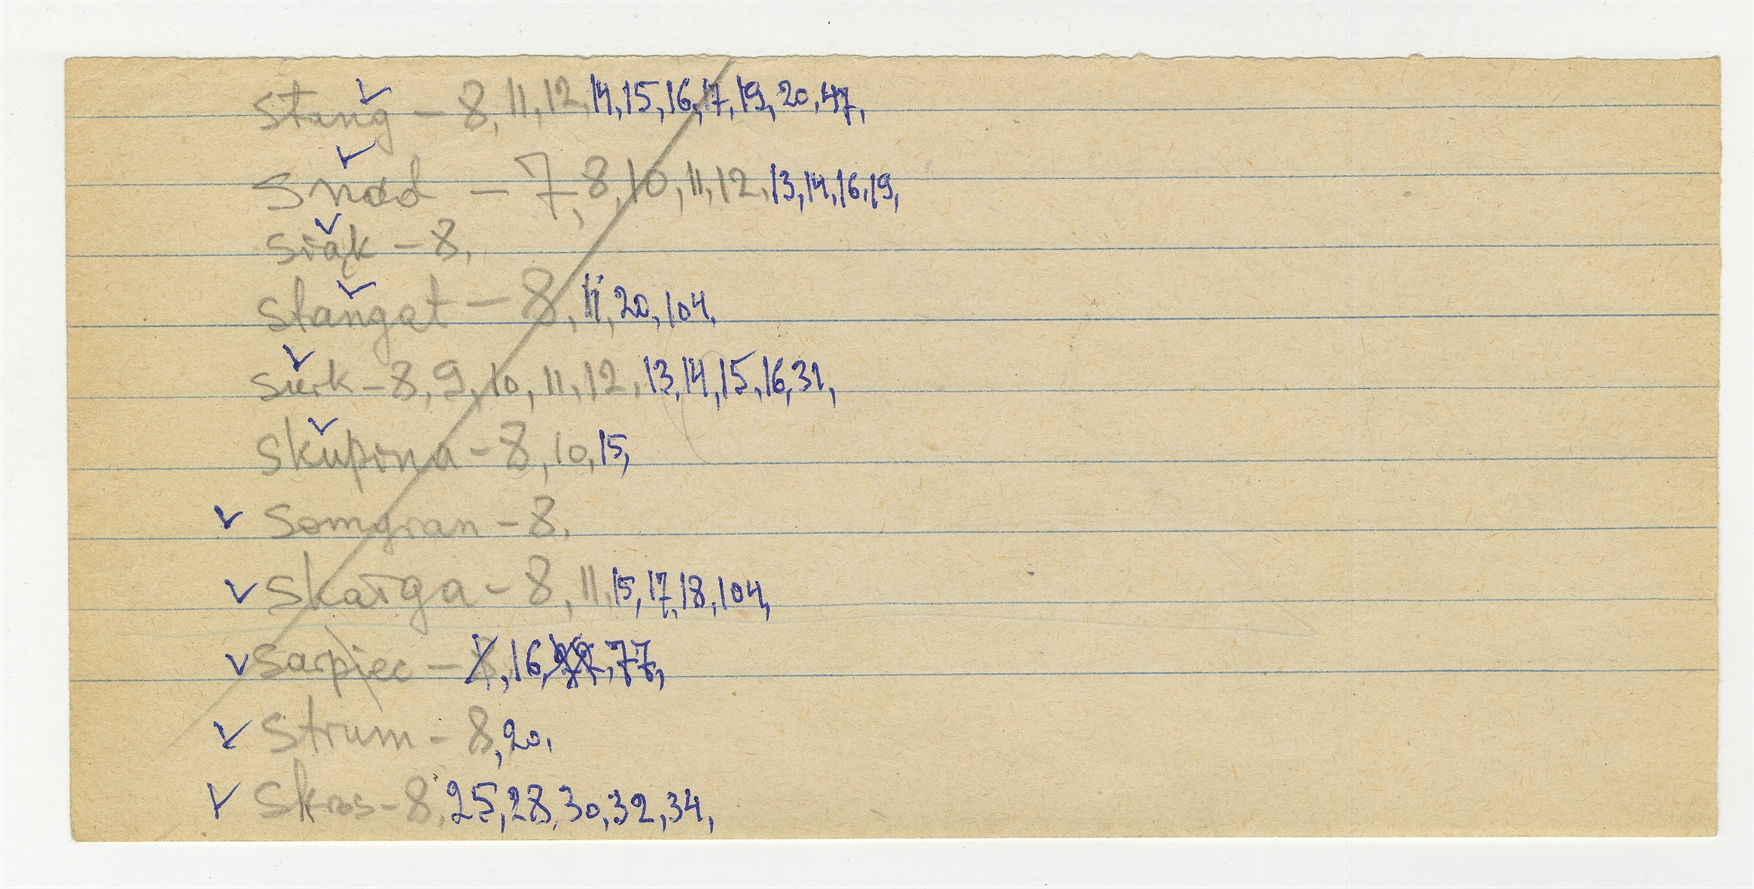 Stang - 8, 11, 12, 14, 15, 16, 17, 19, 20, 47,
Snad - 7, 8, 10, 11, 12, 13, 14, 16, 19,
- 8,
Stangat - 8, 11, 20, 104,
- 8, 9, 10, 11, 12, 13, 14, 15, 16, 31,
Skupina - 8, 10, 15,
Somgran - 8,
Skarga - 8, 11, 15, 17, 18, 104,
Sarpiec - 8, 16, 77,
Strum - 8, 20,
Skros - 8, 25, 28, 30, 32, 34,